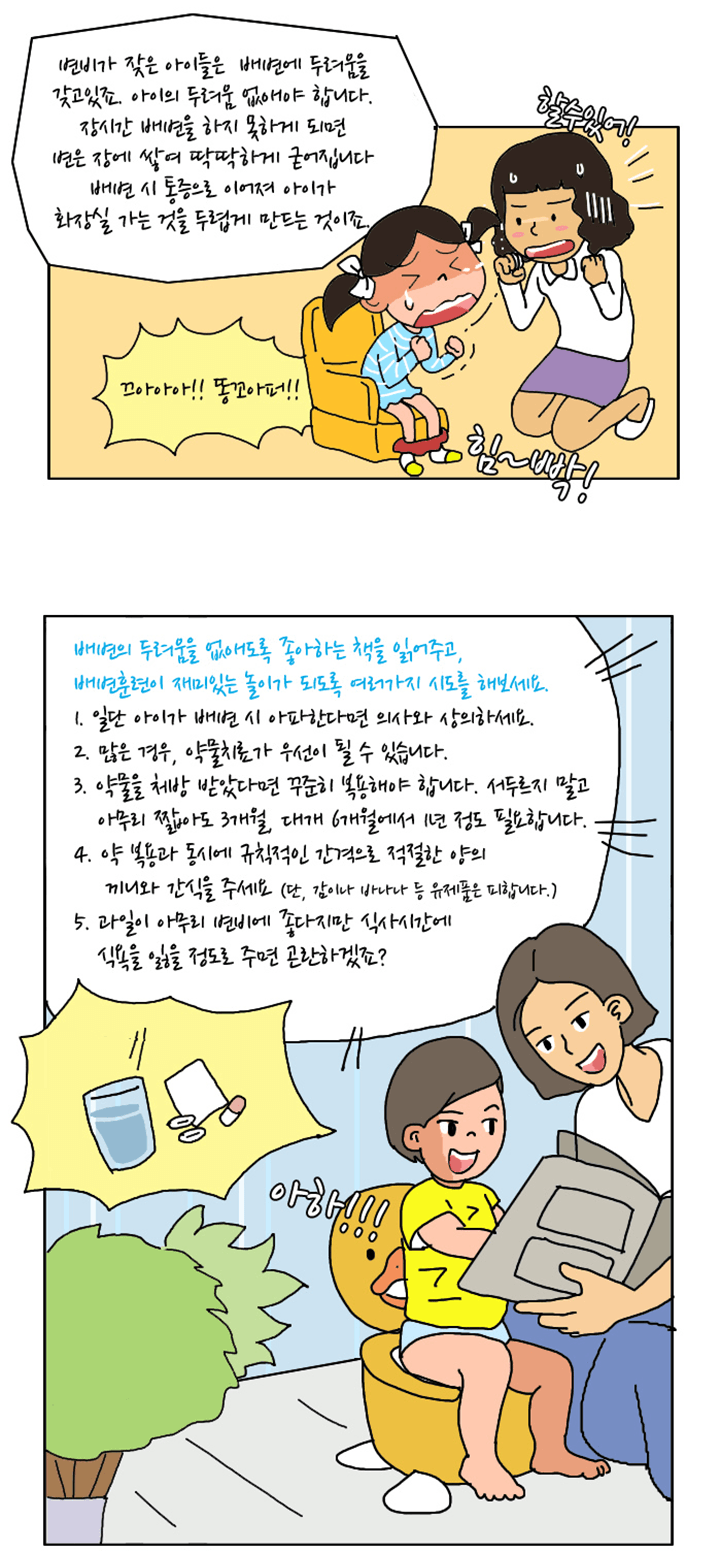 변비가 잦은 아이들은 배변에 두려움을
갖고있죠. 아이의 두려움 없애야 합니다.
장시간 배변을 하지 못하게 되면
변은 장에 쌓여 딱딱하게 굳어집니다
배변 시 통증으로 이어져 아이가
화장실 가는 것을 두렵게 만드는 것이죠.
할수있어!
끄아아아!! 똥꼬아퍼!!
힘~빡!
배변의 두려움을 없애도록 좋아하는 책을 읽어주고,
배변훈련이 재미있는 놀이가 되도록 여러가지 시도를 해보세요.
1. 일단 아이가 배변 시 아파한다면 의사와 상의하세요.
2. 많은 경우, 약물치료가 우선이 될 수 있습니다.
3. 약물을 처방 받았다면 꾸준히 복용해야 합니다. 서두르지 말고
아무리 짧아도 3개월, 대개 6개월에서 1년 정도 필요합니다.
4. 약 복용과 동시에 규칙적인 간격으로 적절한 양의
끼니와 간식을 주세요 (단, 감이나 바나나 등 유제품은 피합니다.)
5. 과일이 아무리 변비에 좋다지만 식사시간에
식욕을 잃을 정도로 주면 곤란하겠죠?
아하!!!